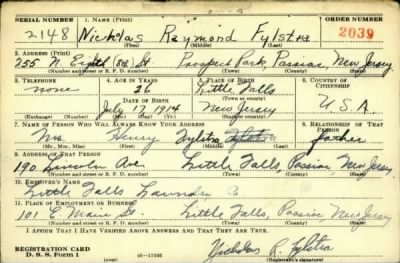 SERIAL NUMBER 1. NAME (Print) ORDER NUMBER
2148 Nicholas Raymond Fylstra 2039
(First) (Middle) (Last)
2. ADDRESS (Print)
255 N. Eighth St Prospect Park, Passaic, New Jersey
(Number and street or R. F. D. number) (Town) (County) (State)
3. TELEPHONE 4. AGE IN YEARS 5. PLACE OF BIRTH 6. COUNTRY OF CITIZENSHIP
none 26 Little Falls
DATE OF BIRTH (Town or county)
July 17 1914 New Jersey U.S.A
(Exchange) (Number) (Mo.) (Day) (Yr.) (State or country)
7. NAME OF PERSON WHO WILL ALWAYS KNOW YOUR ADDRESS 8. RELATIONSHIP OF THAT PERSON
Henry Fylstra father
(Mr., Mrs., Miss) (First) (Middle) (Last)
9. ADDRESS OF THAT PERSON
190 Lincoln Ave Little Falls, Passaic, New Jersey
(Number and street or R. F. D. number) (Town) (County) (State)
10. EMPLOYER'S NAME
Little Falls Laundry Co
11. PLACE OF EMPLOYMENT OR BUSINESS
101 E Main St Little Falls, Passaic New Jersey
(Number and street or R. F. D. number) (Town) (County) (State)
I AFFIRM THAT I HAVE VERIFIED ABOVE ANSWERS AND THAT THEY ARE TRUE.
REGISTRATION CARD
D. S. S. Form 1 (over) 16—17105 Nicholas R. Fylstra
(Registrant's signature)